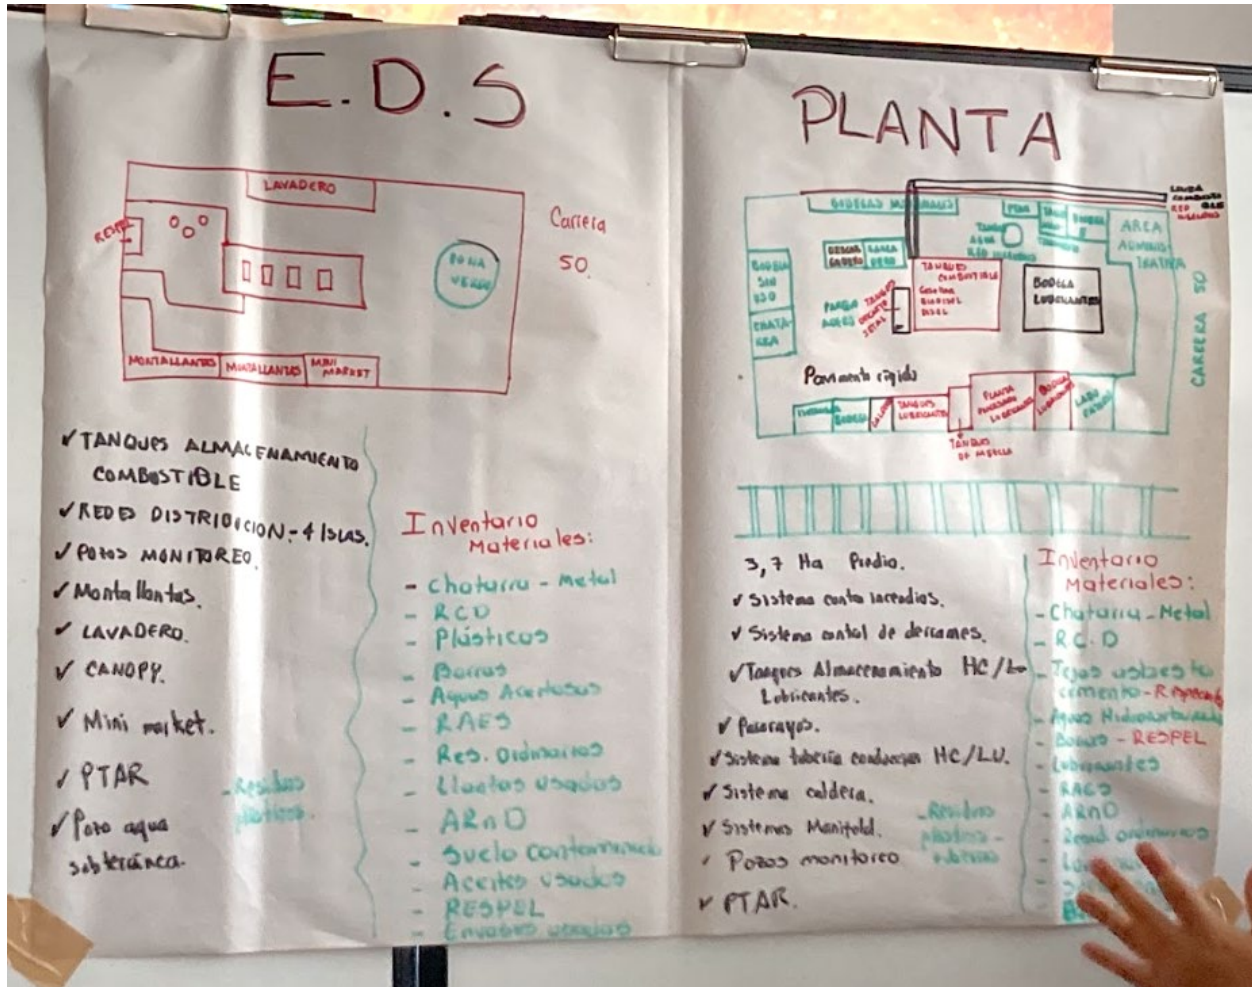 E.D.S
LAVADERO
RESPEL
ZONA
VERDE
Carrera
50.
MONTALLANTAS
MONTALLANTAS
MINI
MARKET
✓ TANQUES ALMACENAMIENTO
COMBUSTIBLE
✓ REDES DISTRIBUCION - 4 ISLAS.
✓ POZOS MONITOREO.
✓ Montallantas.
✓ LAVADERO.
✓ CANOPY.
✓ Mini market.
✓ PTAR
✓ Pozo agua
subterránea.
- Residuos
Inventario
Materiales:
- Chatarra - Metal
- RCD
- Plásticos
- Borras
- Aguas Aceitosas
- RAES
- Res. Ordinarios
- Llantas usadas
- ARnD
- Suelo contaminado
- Aceites usados
- RESPEL
- Envases usados
PLANTA
BODEGAS
AREA
ADMINIS
TRATIVA
CARRERA 50
BODEGA
SIN
USO
CHATA-
RRA
TANQUES
COMBUSTIBLE
BODEGA
LUBRICANTES
Pavimento rígido
BODEGA
TANQUES
LUBRICANTES
PLANTA
LUBRICANTES
BODEGA
LUBRICANTES
TANQUES
DE MEZCLA
3,7 Ha Predio.
✓ Sistema contra incendios.
✓ Sistema control de derrames.
✓ Tanques Almacenamiento HC/Lu
Lubricantes.
✓ Pararayos.
✓ Sistema tubería conduccion HC/LU.
✓ Sistema caldera.
✓ Sistemas Manifold.
✓ Pozos monitoreo
✓ PTAR.
- Residuos
Inventario
Materiales:
- Chatarra - Metal
- RC.D
- Tejas asbesto
cemento -
- Aguas
- Borras - RESPEL
- Lubricantes
- RAES
- ARnD
- Resid. ordinarios